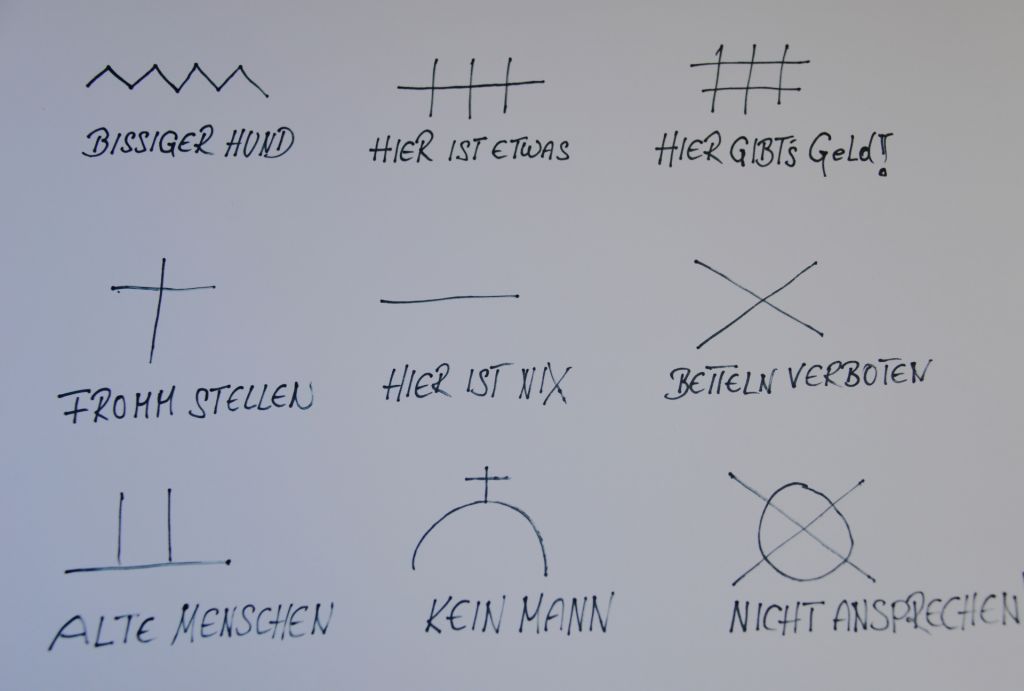 BISSIGER HUND
HIER IST ETWAS
HIER GIBT'S Geld!
FROMM STELLEN
HIER IST NIX
BETTELN VERBOTEN
ALTE MENSCHEN
KEIN MANN
NICHT ANSPRECHEN